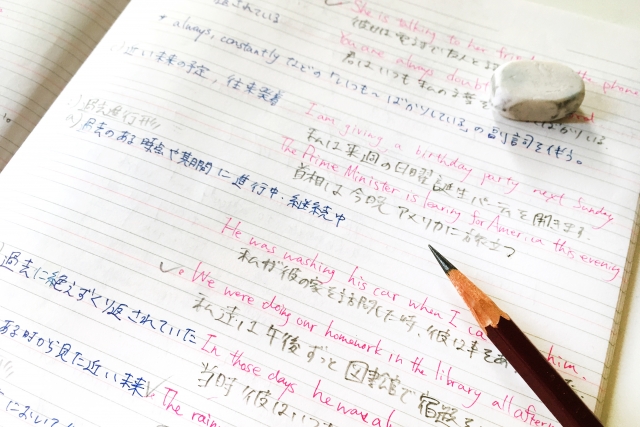 されている
She is talking to her the phone
彼女は
You are always doubt
君はいつも私の
* always, constantly などの「いつも〜ばかりしている」の副詞を伴う。
近い未来の予定, 往来発着
I am giving a birthday party next Sunday
私は来週の日曜誕生パーティを開きます
The Prime Minister is leaving for America this evening
首相は今晩アメリカに旅立つ
過去進行形
a) 過去のある時点や期間に進行中・継続中
He was washing his car when I ca him.
私が彼の家を訪問した時、彼は車を
過去に絶えずくり返されていた
We were doing our homework in the library all after
私達は午後ずっと図書館で宿題を
ある時から見た近い未来
In those days he was al
当時 彼はいつ
The rain
において